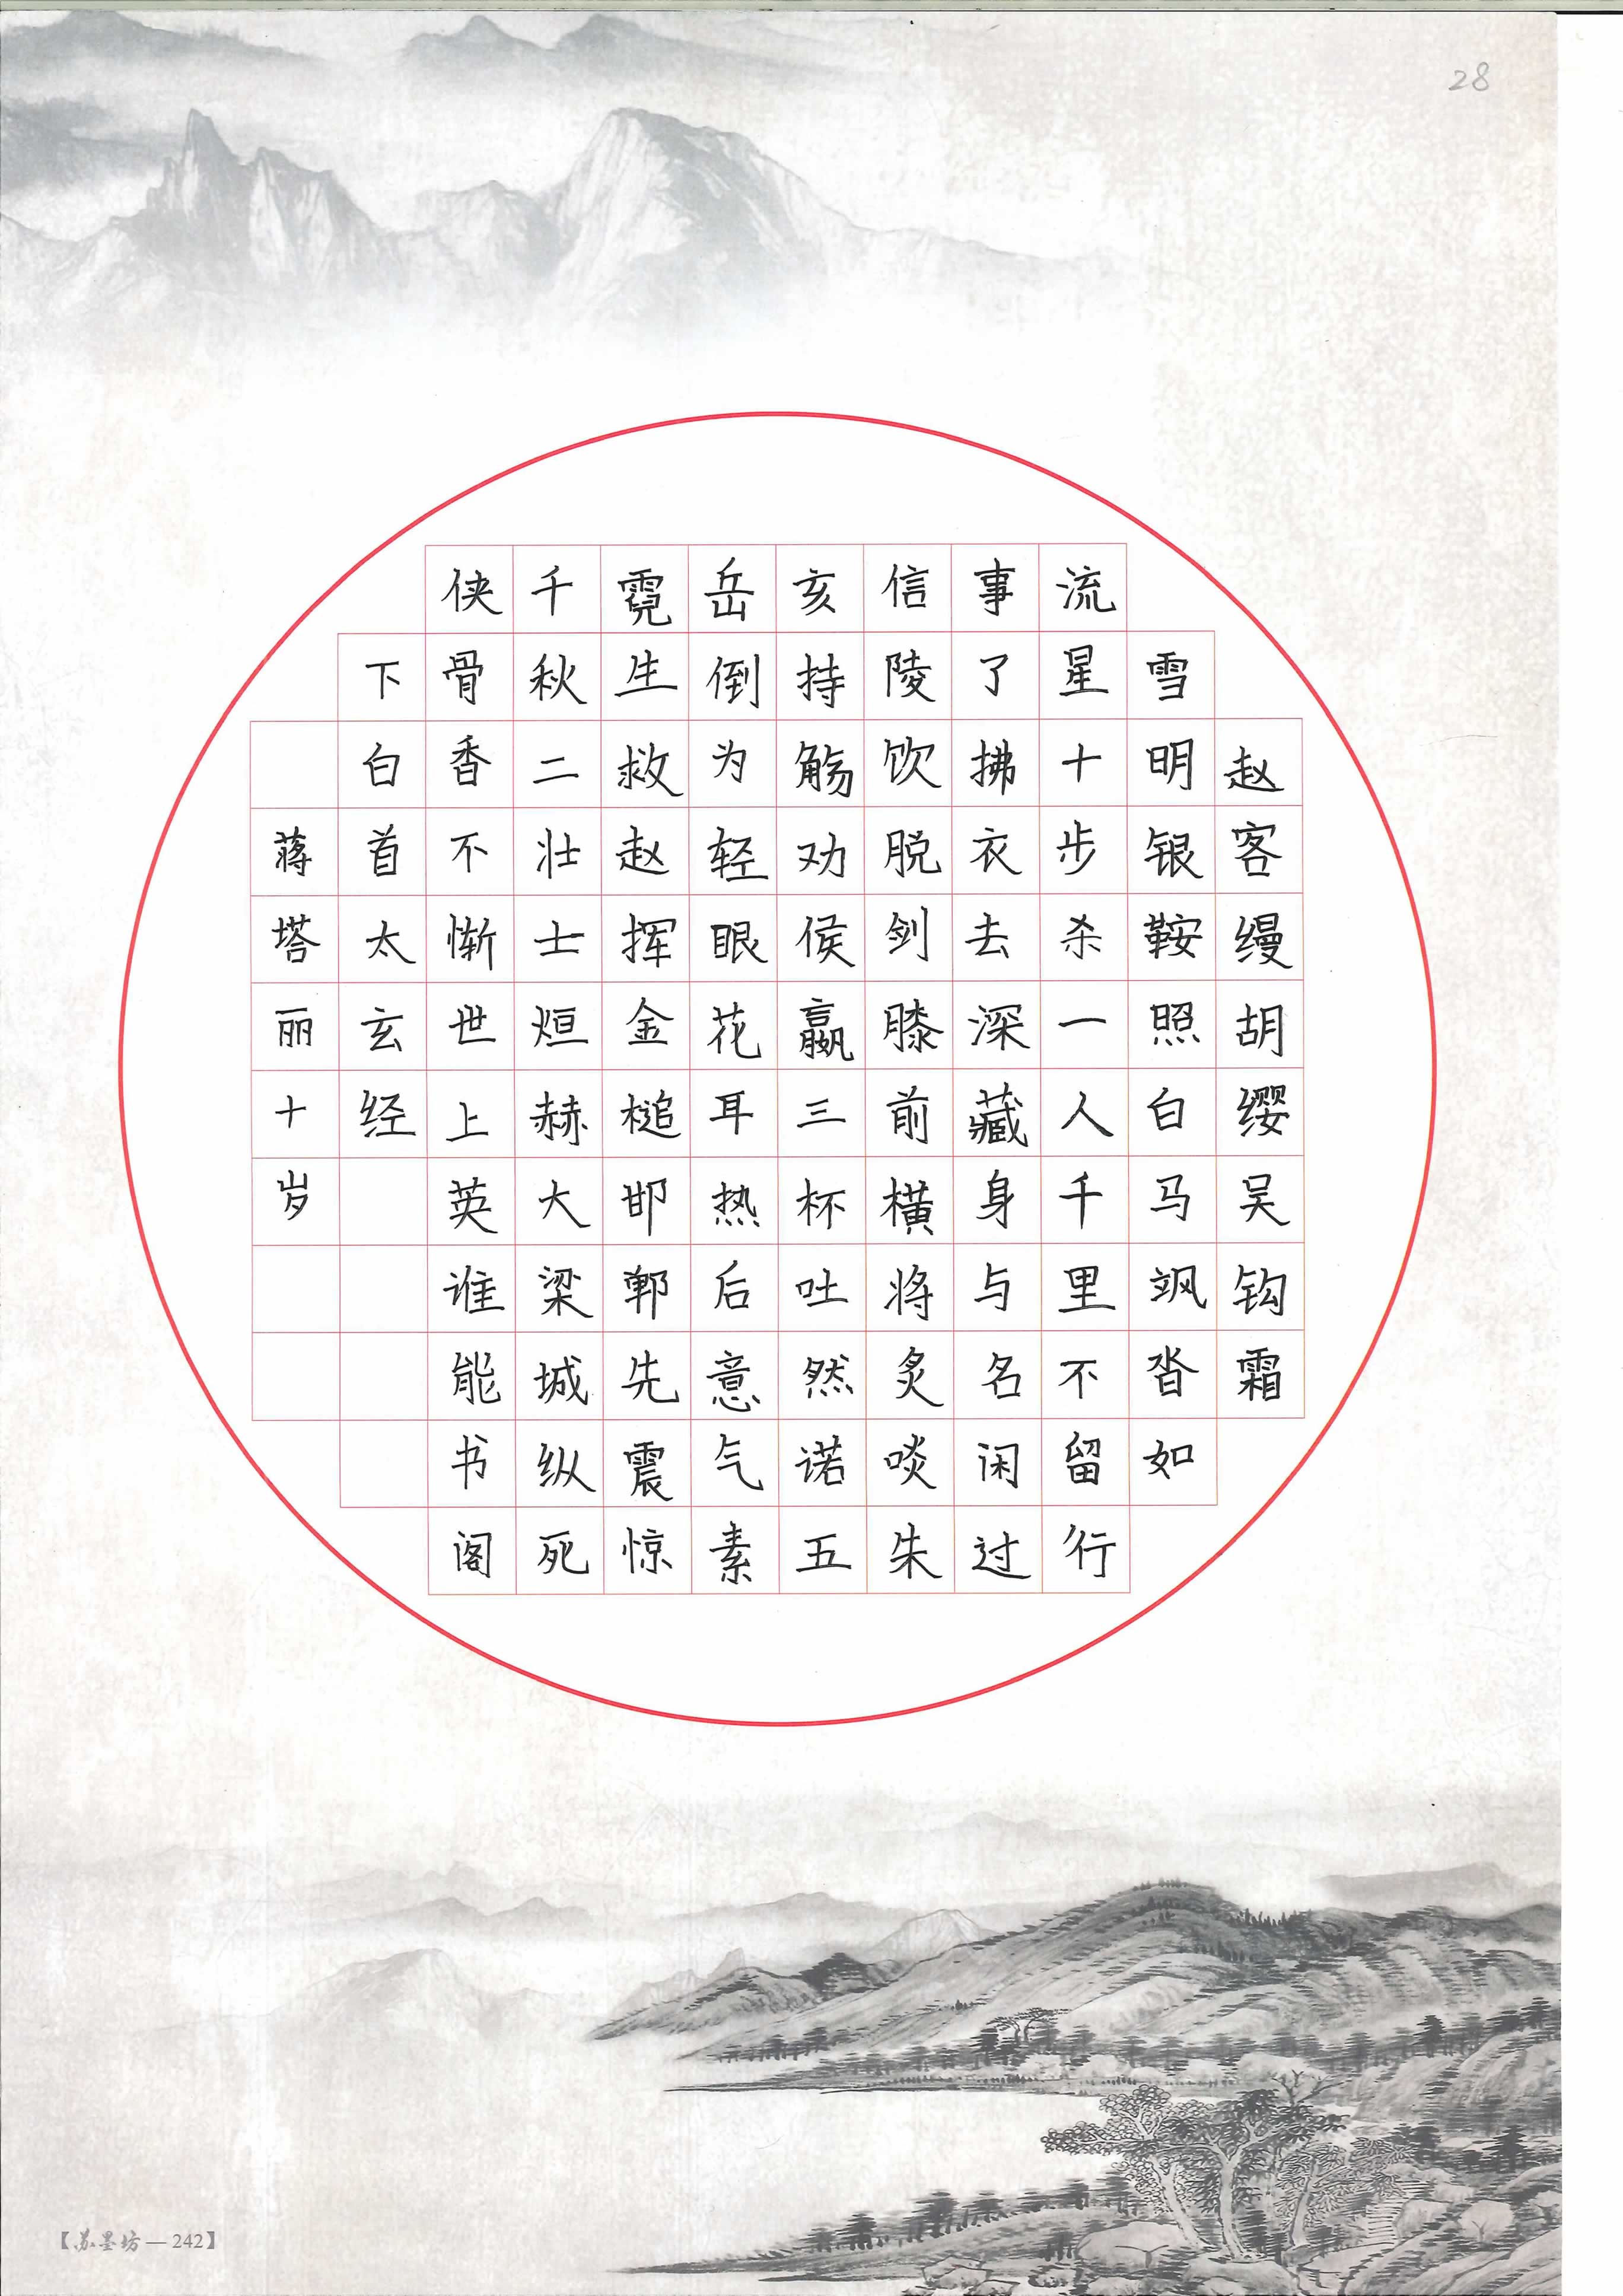 28
赵客缦胡缨吴钩霜
雪明银鞍照白马飒沓如
流星十步杀一人千里不留行
事了拂衣去深藏身与名闲过
信陵饮脱剑膝前横将炙啖朱
亥持觞劝侯嬴三杯吐然诺五
岳倒为轻眼花耳热后意气素
霓生救赵挥金槌邯郸先震惊
千秋二壮士烜赫大梁城纵死
侠骨香不惭世上英谁能书阁
下白首太玄经
蒋塔丽十岁
【苏墨坊—242】